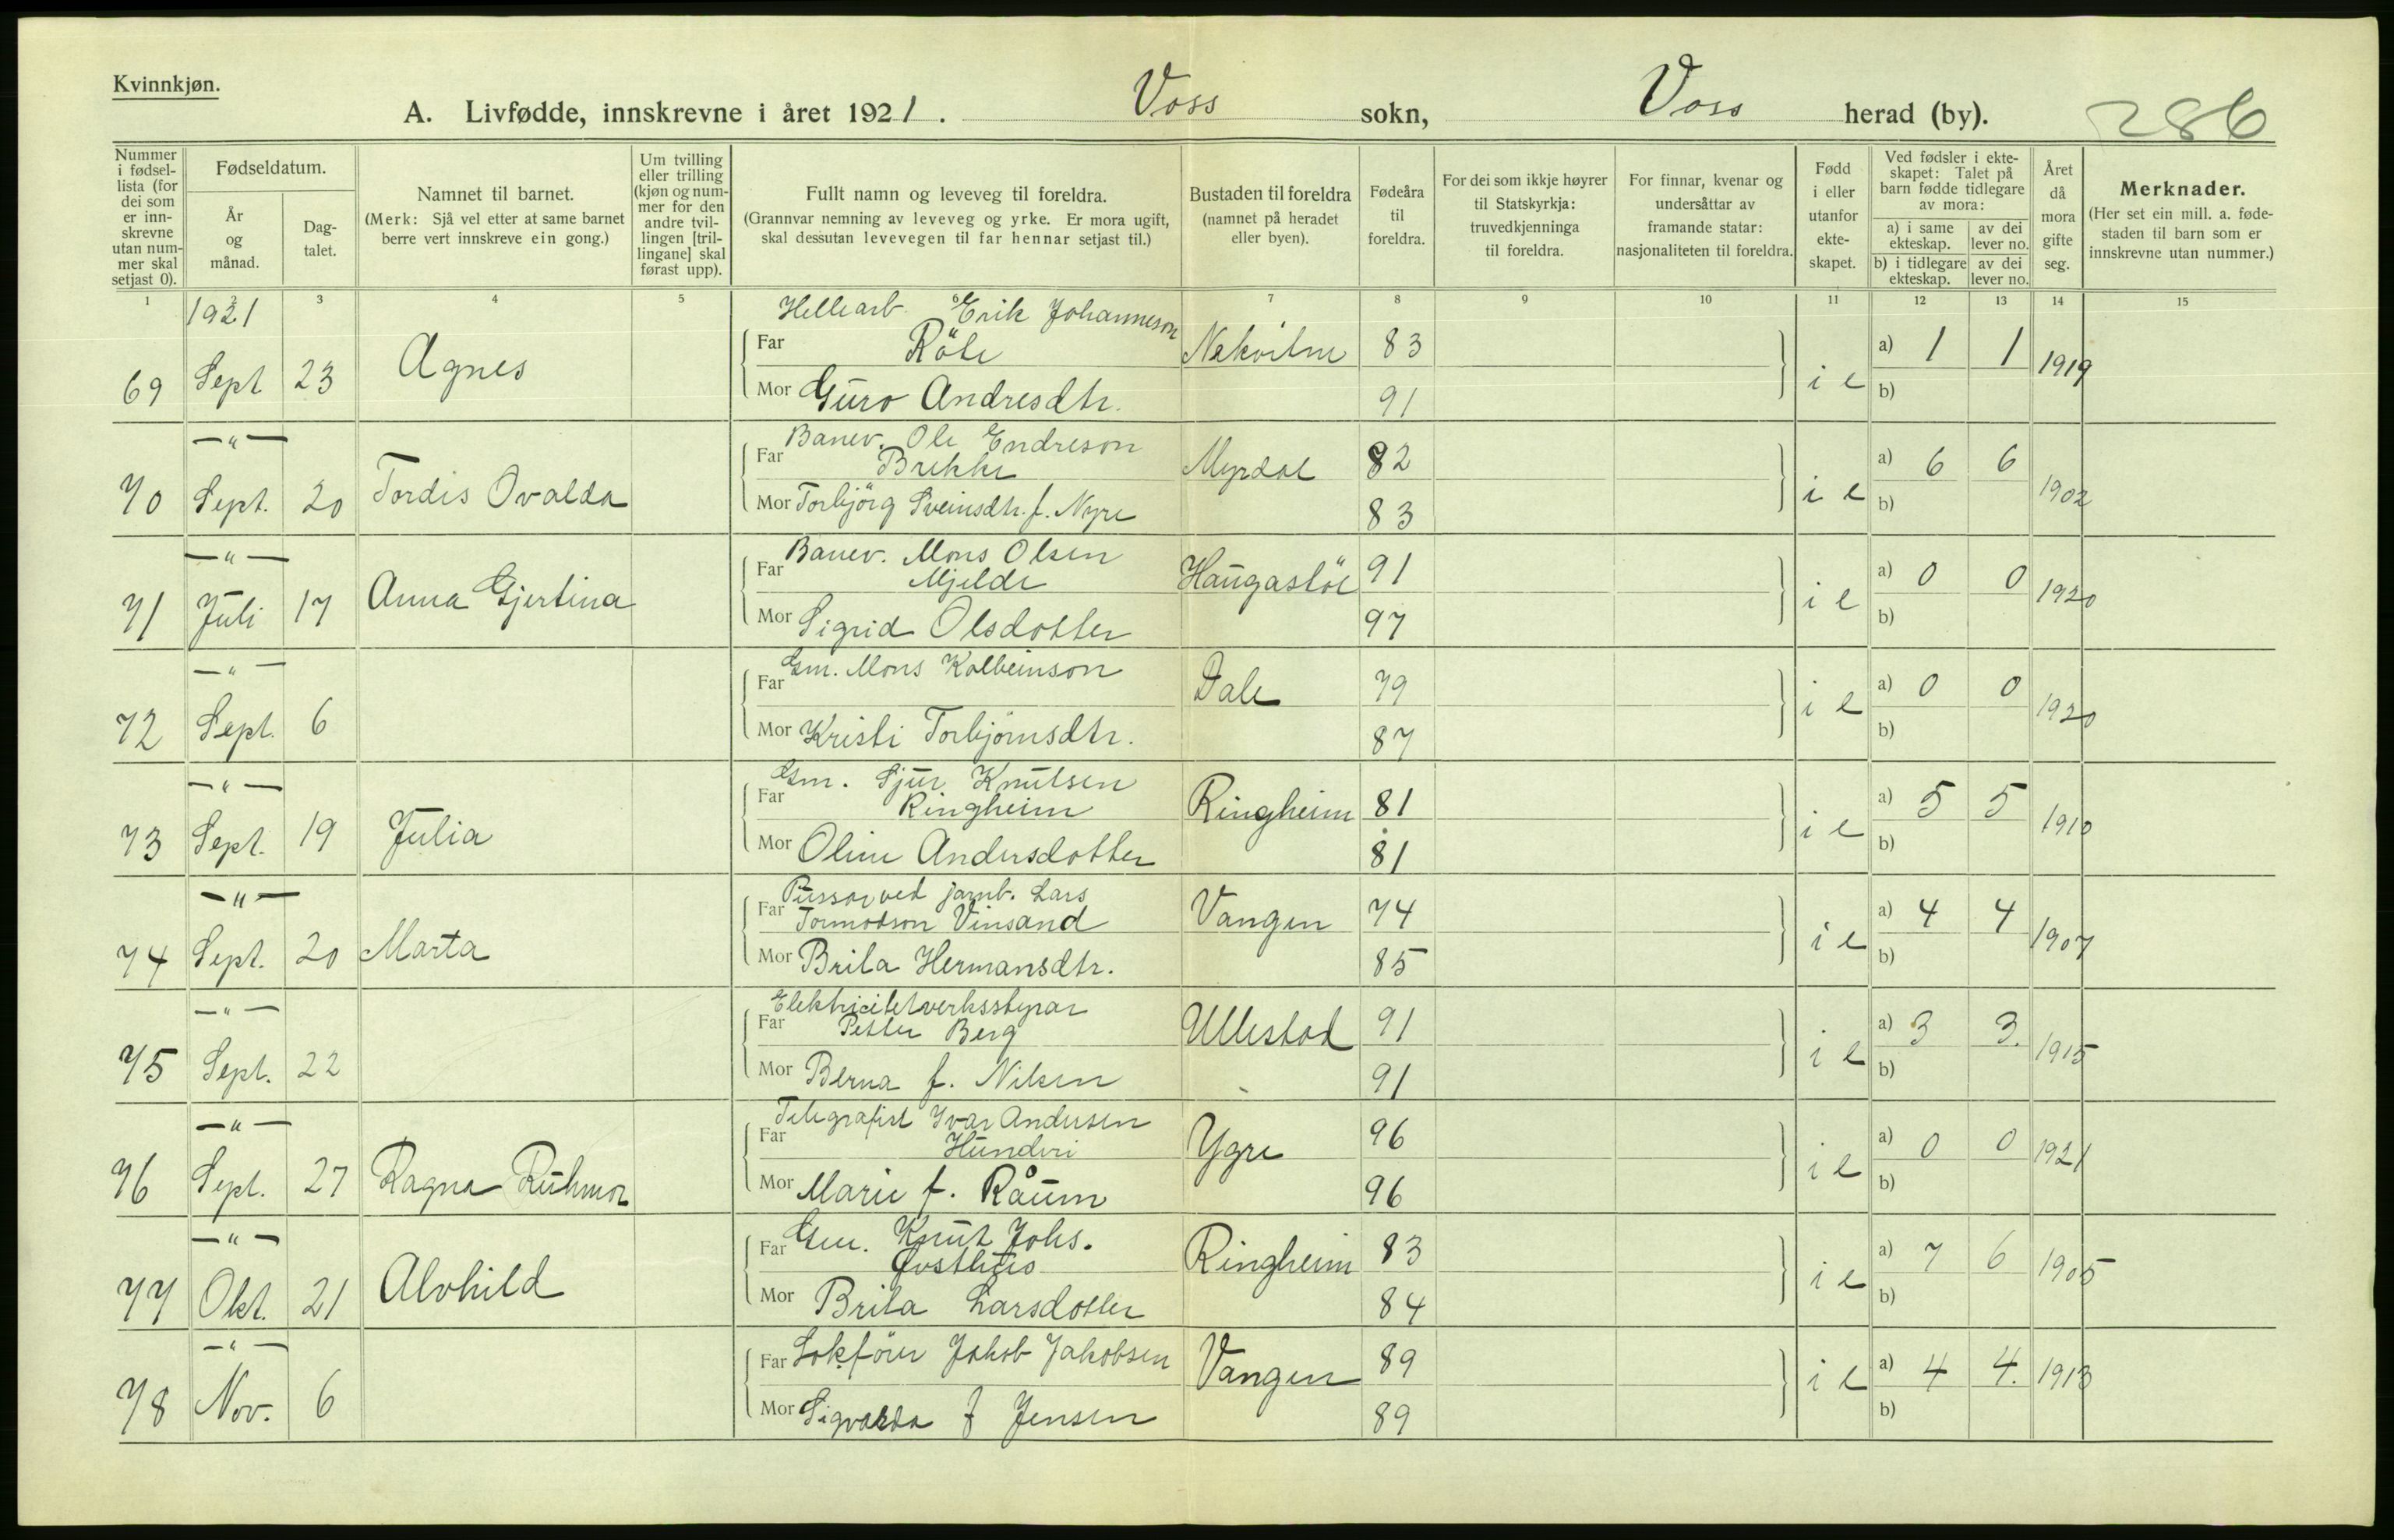 Kvinnkjøn.
A. Livfødde, innskrevne i året 1921. Voss sokn, Voss herad (by). 286
Nummer i fødsel-lista (for dei som er inn-skrevne utan num-mer skal setjast 0).
Fødseldatum.
År og månad.
Dag-talet.
Namnet til barnet.
(Merk: Sjå vel etter at same barnet berre vert innskreve ein gong.)
Um tvilling eller trilling (kjøn og num-mer for den andre tvil-lingen [tril-lingane] skal førast upp).
Fullt namn og leveveg til foreldra.
(Grannvar nemning av leveveg og yrke. Er mora ugift, skal dessutan levevegen til far hennar setjast til.)
Bustaden til foreldra (namnet på heradet eller byen).
Fødeåra til foreldra.
For dei som ikkje høyrer til Statskyrkja: truvedkjenninga til foreldra.
For finnar, kvenar og undersåttar av framande statar: nasjonaliteten til foreldra.
Fødd i eller utanfor ekte-skapet.
Ved fødsler i ekte-skapet: Talet på barn fødde tidlegare av mora:
a) i same ekteskap. av dei lever no.
b) i tidlegare ekteskap. av dei lever no.
Året då mora gifte seg.
Merknader.
(Her set ein mill. a. føde-staden til barn som er innskrevne utan nummer.)
1 2 3 4 5 6 7 8 9 10 11 12 13 14 15
1921
Hellearb. Erik Johanneson
69 Sept 23 Agnes Far Röte 83 i e a) 1 1 1919
Mor Guro Andresdtr. 91 b)
—"— Banev. Ole Endreson
70 Sept. 20 Tordis Ovalda Far Brekke Myrdal 82 i e a) 6 6 1902
Mor Torbjörg Sveinsdtr. f. Nyre 83 b)
—"— Banev. Mons Olsen
71 Juli 17 Anna Gjertina Far Mjelde Haugastöl 91 i e a) 0 0 1920
Mor Sigrid Olsdotter 97 b)
—"— Gm. Mons Kolbeinson
72 Sept. 6 Far Dale 79 i e a) 0 0 1920
Mor Kristi Torbjörnsdtr. 87 b)
—"— Gm. Sjur Knutsen
73 Sept. 19 Julia Far Ringheim Ringheim 81 i e a) 5 5 1910
Mor Oline Andersdotter 81 b)
—"— Pussar ved jarnb. Lars
74 Sept. 20 Marta Far Tormodson Vinsand Vangen 74 i e a) 4 4 1907
Mor Brita Hermansdtr. 85 b)
—"— Elektricitetverksstyrar
75 Sept. 22 Far Petter Berg Ullestad 91 i e a) 3 3. 1915
Mor Berna f. Nilsen 91 b)
—"— Telegrafist Ivar Andersen
76 Sept. 27 Ragna Far Hunderi Ygre 96 i e a) 0 0 1921
Mor Marie f. Råum 96 b)
—"— Gm. Knut Johs.
77 Okt. 21 Alvhild Far Ringheim 83 i e a) 7 6 1905
Mor Brita Larsdotter 84 b)
—"—
78 Nov. 6 Far Lokförer Jakob Jakobsen Vangen 89 i e a) 4 4. 1913
Mor Sigvarda f Jensen 89 b)